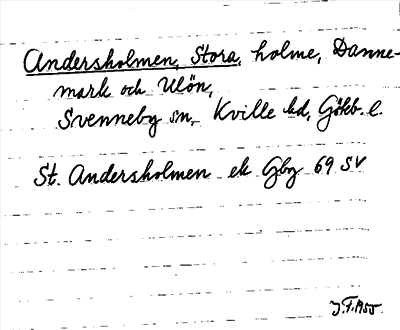 Andersholmen, Stora, holme, Danne-
mark och Ulön,
Svenneby sn, Kville hd, Gökb. l.
St. Andersholmen ek Gbg 69 SV
J.F. 1955